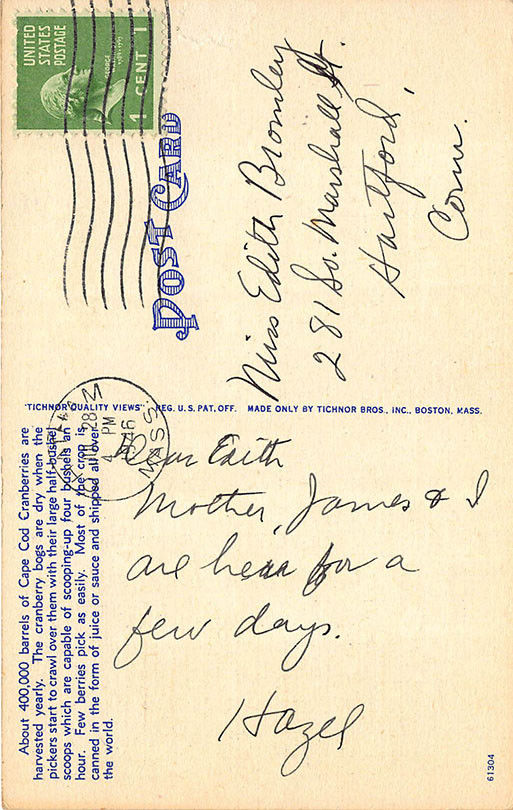 UNITED
STATES
POSTAGE
1 CENT 1
POST CARD
Miss Edith Bromley
281 So. Marshall St.
Hartford,
Conn.
"TICHNOR QUALITY VIEWS" REG. U.S. PAT. OFF. MADE ONLY BY TICHNOR BROS., INC., BOSTON, MASS.
28
4 PM
1946
MASS.
Dear Edith
Mother, James & I
are hear for a
few days.
Hazel
About 400,000 barrels of Cape Cod Cranberries are
harvested yearly. The cranberry bogs are dry when the
pickers start to crawl over them with their large half-bushel
scoops which are capable of scooping-up four bushels an
hour. Few berries pick as easily. Most of the crop is
canned in the form of juice or sauce and shipped all over
the world.
61304